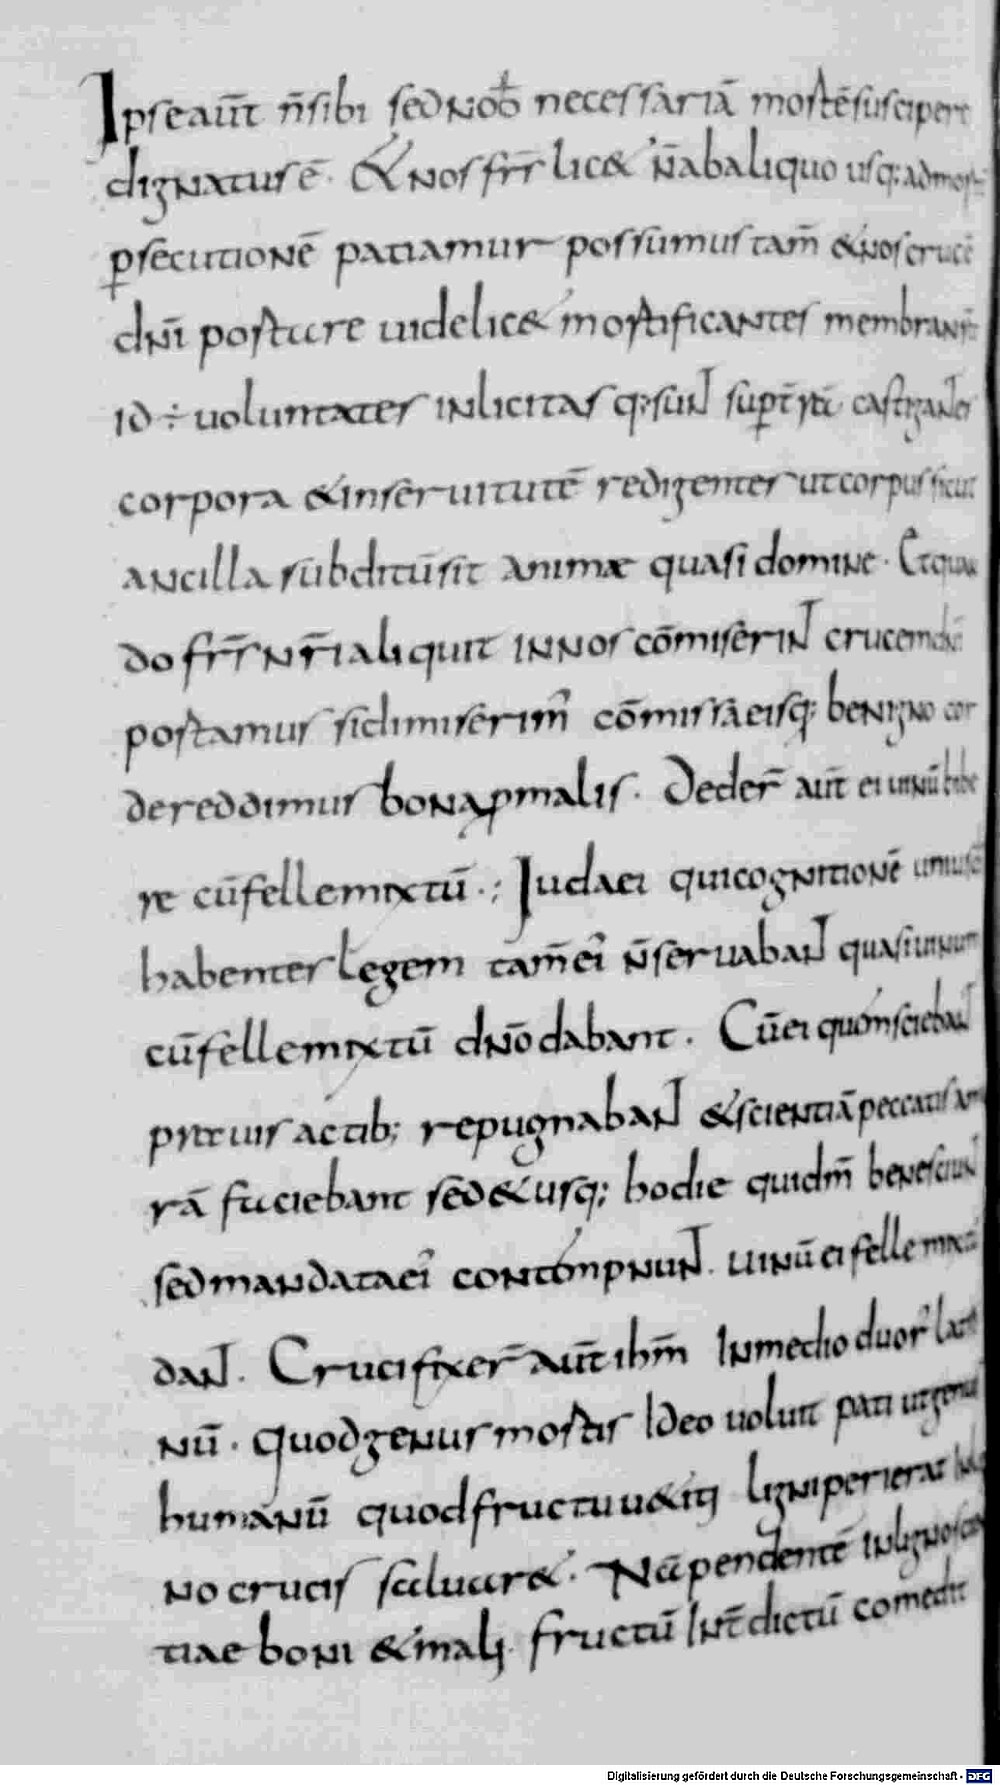 Ipse aut̄ n̄ sibi sed nob̄ necessariā mortē suscipere
dignatus ē. & nos fr̄s̄ lic& n̄ ab aliquo usq; ad mort̄
p̱secutionē patiamur possumus tam̄ & nos crucē
dn̄i portare uidelic& mortificantes membra nr̄a
id ÷ uoluntates inlicitas q; sunt sup̱ t̄r̄ā castigantes
corpora & in seruitutē redigentes ut corpus sicut
ancilla subditū sit animae quasi domine. Et quan
do fr̄s̄ nr̄i aliquit in nos cōmiserint crucem dn̄i
portamus si dimiserim̄ cōmissā eisq; benigno cor
de reddimus bona p̱ malis. Deder̄ aut̄ ei uinū bibe
re cū felle mixtū.; Iudaei qui cognitionē unius dī
habentes legem tam̄ ei᾽ n̄ seruabant quasi uinum
cū felle mixtū dn̄o dabant. Cū ei quom̄ sciebant
prauis actib; repugnabant & scientiā peccatis ama
rā faciebant sed & usq; hodie quidm̄ bene sciunt
sed mandata ei᾽ contempnunt. uinū ei felle mixtū
dant. Crucifixer̄ aut̄ ih̄m̄ In medio duor᾽ latro
nū. Quod genus mortis Ideo uoluit pati ut genus
humanū quod fructu u&iti ligni perierat lig
no crucis saluar&. Nā pendentē in ligno scien
tiae boni & mali. fructū Int̄dictū comedit